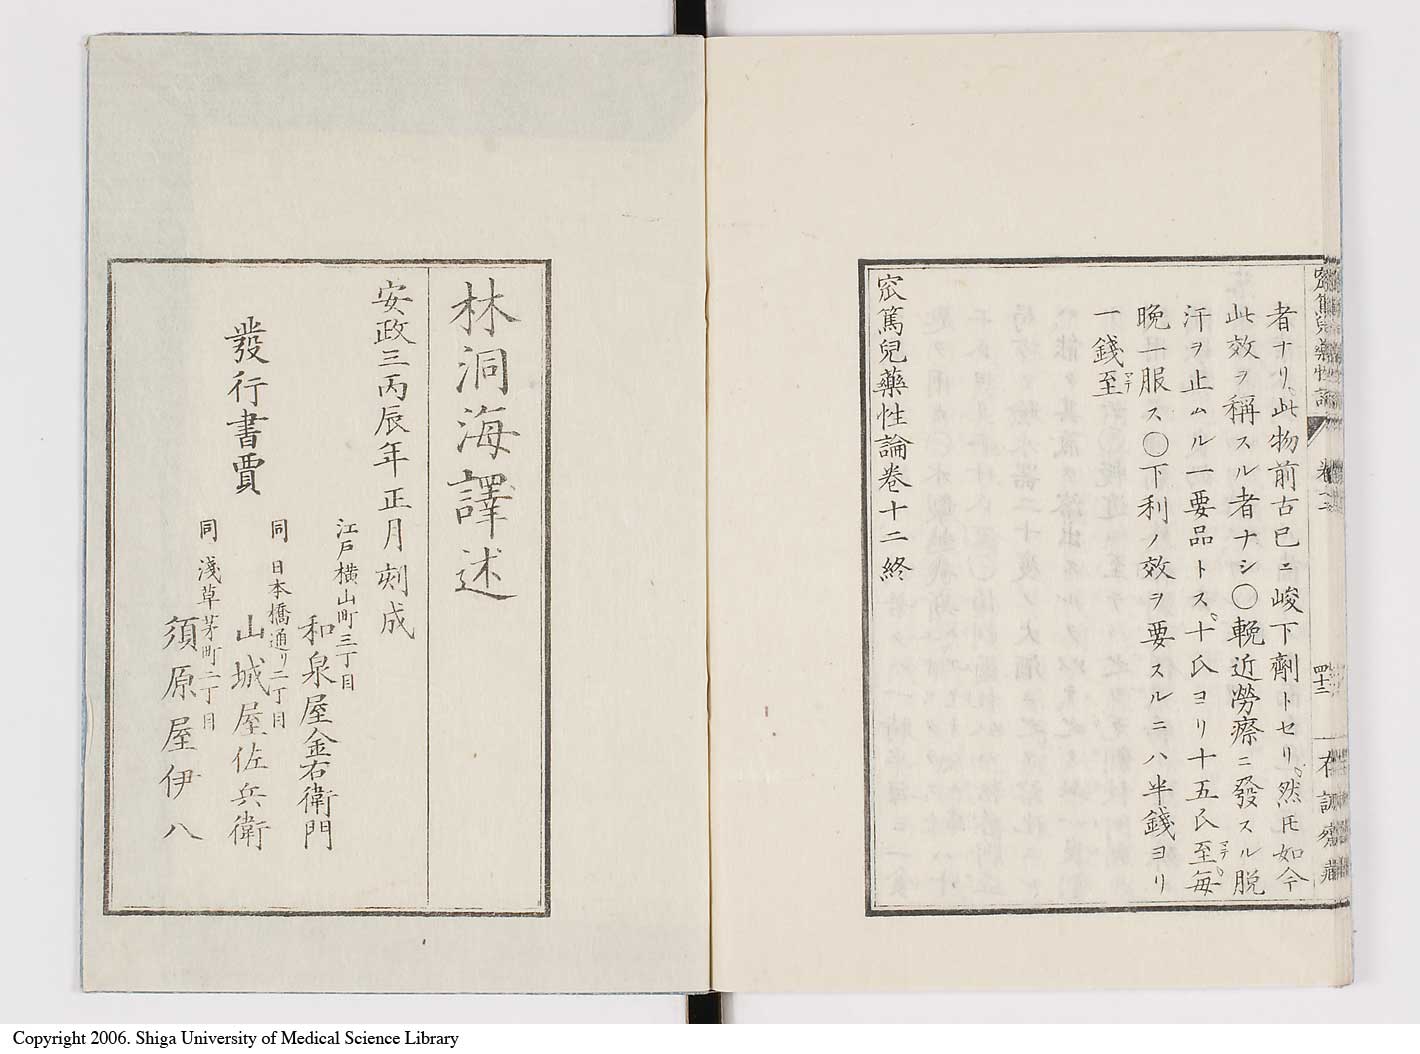 者ナリ此物前古已ニ峻下劑トセリ然𪜈如今
此效ヲ稱スル者ナシ〇輓近勞瘵ニ發スル脱
汗ヲ止ムル一要品トス十氏ヨリ十五氏至マデ每
晩一服ス〇下利ノ效ヲ要スルニハ半錢ヨリ
一錢至マデ
窊篤兒藥性論卷十二終
林洞海譯述
安政三丙辰年正月刻成
發行書賈
江戸橫山町三丁目
和泉屋金右衛門
同 日本橋通リ二丁目
山城屋佐兵衛
同 淺草茅町二丁目
須原屋伊八
Copyright 2006. Shiga University of Medical Science Library